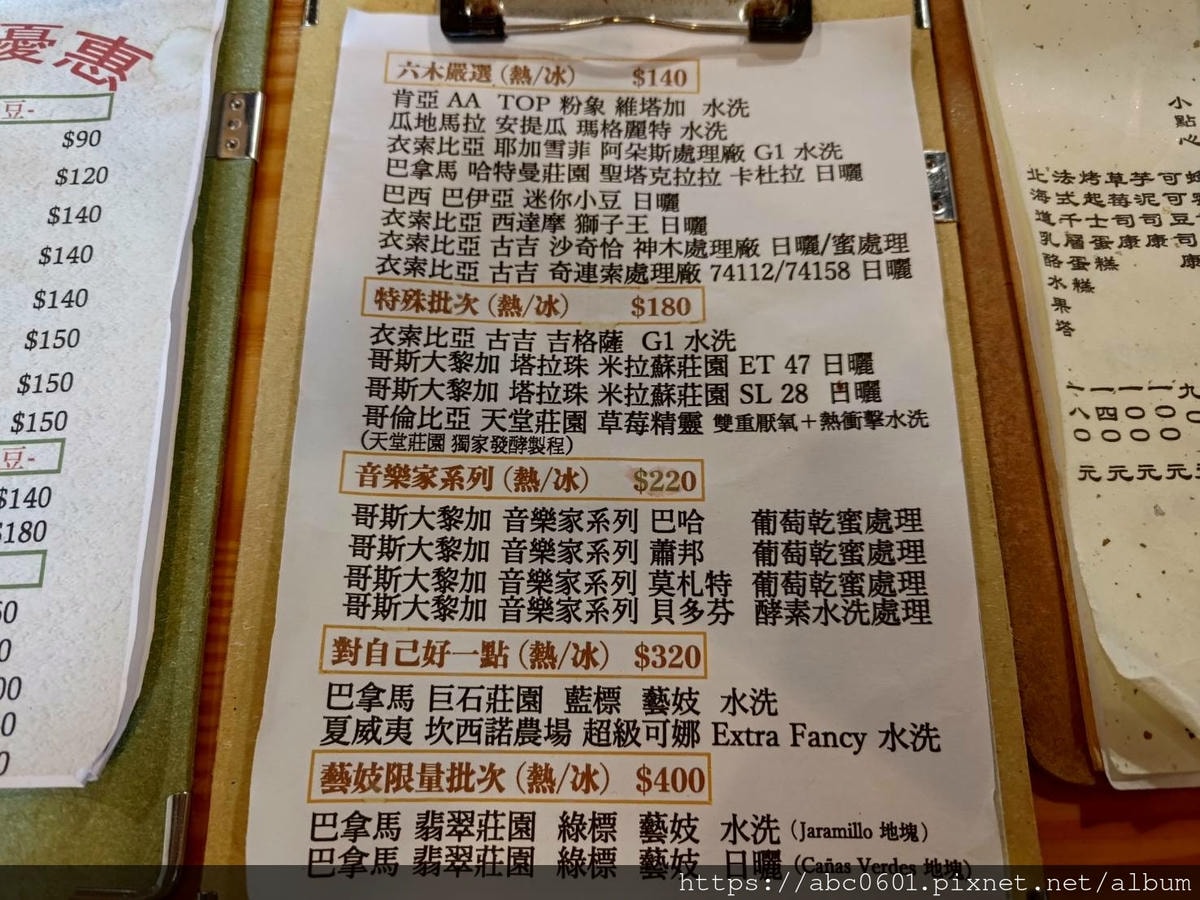 優惠
豆-
$90
$120
$140
$140
$140
$150
$150
$150
豆-
$140
$180
六木嚴選(熱/冰) $140
肯亞 AA TOP 粉象 維塔加 水洗
瓜地馬拉 安提瓜 瑪格麗特 水洗
衣索比亞 耶加雪菲 阿朵斯處理廠 G1 水洗
巴拿馬 哈特曼莊園 聖塔克拉拉 卡杜拉 日曬
巴西 巴伊亞 迷你小豆 日曬
衣索比亞 西達摩 獅子王 日曬
衣索比亞 古吉 沙奇恰 神木處理廠 日曬/蜜處理
衣索比亞 古吉 奇連索處理廠 74112/74158 日曬
特殊批次(熱/冰) $180
衣索比亞 古吉 吉格薩 G1 水洗
哥斯大黎加 塔拉珠 米拉蘇莊園 ET 47 日曬
哥斯大黎加 塔拉珠 米拉蘇莊園 SL 28 日曬
哥倫比亞 天堂莊園 草莓精靈 雙重厭氧+熱衝擊水洗
(天堂莊園 獨家發酵製程)
音樂家系列(熱/冰) $220
哥斯大黎加 音樂家系列 巴哈 葡萄乾蜜處理
哥斯大黎加 音樂家系列 蕭邦 葡萄乾蜜處理
哥斯大黎加 音樂家系列 莫札特 葡萄乾蜜處理
哥斯大黎加 音樂家系列 貝多芬 酵素水洗處理
對自己好一點(熱/冰) $320
巴拿馬 巨石莊園 藍標 藝妓 水洗
夏威夷 坎西諾農場 超級可娜 Extra Fancy 水洗
藝妓限量批次(熱/冰) $400
巴拿馬 翡翠莊園 綠標 藝妓 水洗 (Jaramillo 地塊)
巴拿馬 翡翠莊園 綠標 藝妓 日曬 (Cañas Verdes 地塊)
小點心
可豆司康
可可司康
芋泥
草莓蛋糕
烤起士蛋糕
法式千層
北海道乳酪水果塔
https://abc0601.pixnet.net/album